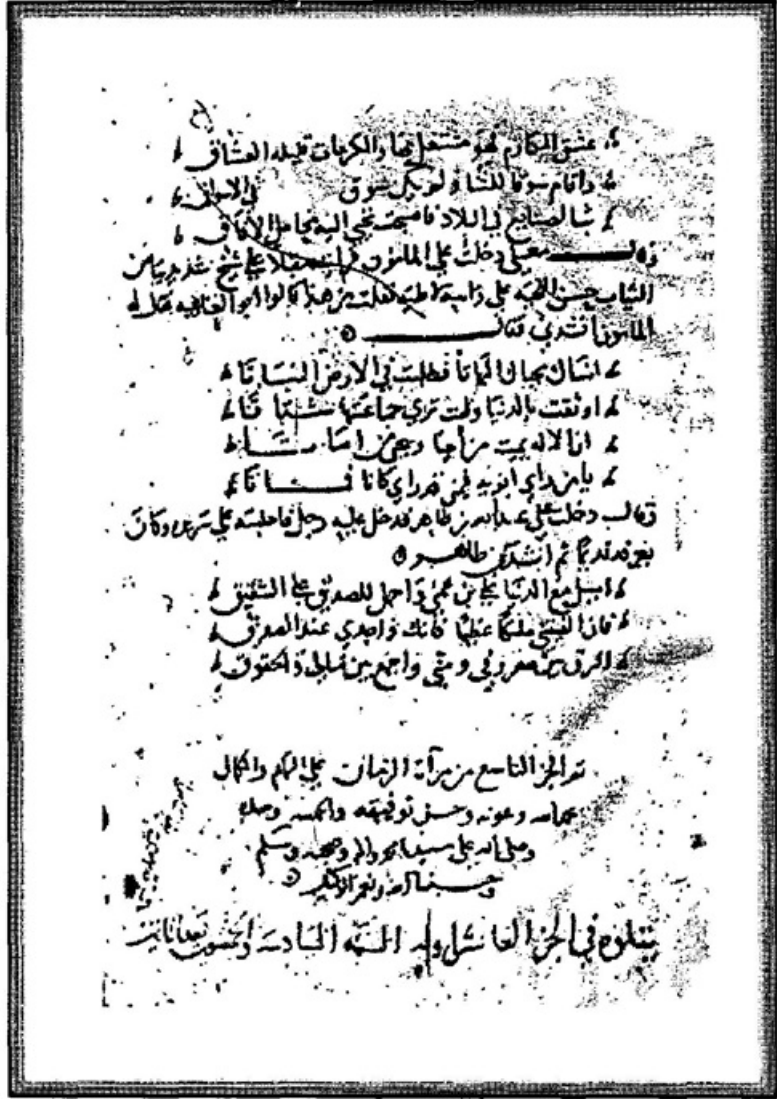 عشق المكارم فهو مشتغل بها والمكرمات قليلة العشاق
واقام سوقا للثنا ولم تكن سوق في الاسواق
بث الصنايع في البلاد فاصبحت تجبي اليه محامد الافاق
وقال دخلت علي المامون فرايته مقبلا علي شيخ شديد بياض
الثياب حسن اللحية علي راسه لاطية فقلت من هذا قالوا ابو العتاهية فقال له
المامون انشدني فقال
انساك محياك المماتا فطلبت في الارض الثباتا
اوثقت بالدنيا وانت تري جماعتها شتاتا
يا من راي ابويه فيمن قد راي كانا فماتا
وقال دخلت علي عبد الله بن طاهر فدخل عليه رجل فاجلسه علي سريره وكان
يعرفه قديما ثم انشد طاهر
اميل مع علي بن عمي واحمل للصديق علي الشقيق
فان الفيتني ملكا عظيما فانك واجدي عند الصديق
افرق بين معروفي ومني واجمع بين مالي والحقوق
تم الجز التاسع من مرآة الزمان علي التمام والكمال
بحمد الله وعونه وحسن توفيقه والحمد لله وحده
وصلي الله علي سيدنا محمد واله وصحبه وسلم
وحسبنا الله ونعم الوكيل
يتلوه في الجز العاشر اوله السنة السادسة